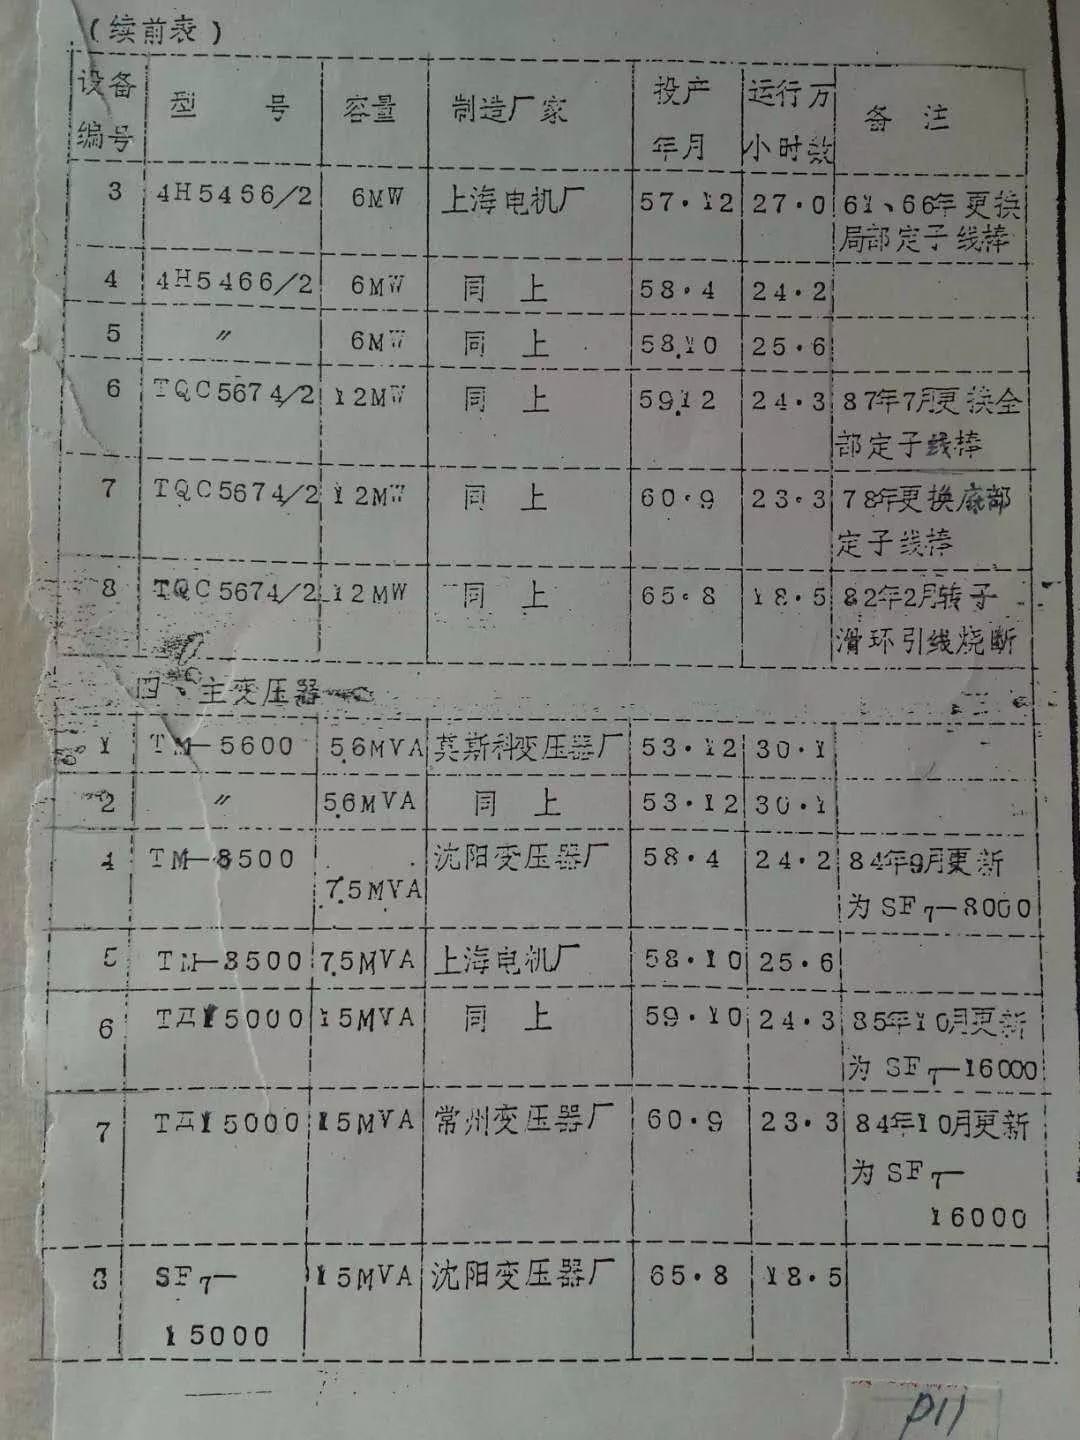 （续前表）
设备 型 号 容量 制造厂家 投产 运行万 备 注
编号 年月 小时数
3 4H5466/2 6MW 上海电机厂 57·12 27·0 61、66年更换
局部定子线棒
4 4H5466/2 6MW 同 上 58·4 24·2
5 〃 6MW 同 上 58.10 25·6
6 TQC5674/2 12MW 同 上 59.12 24·3 87年7月更换全
部定子线棒
7 TQC5674/2 12MW 同 上 60·9 23·3 78年更换底部
定子线棒
8 TQC5674/2 12MW 同 上 65·8 18·5 82年2月转子
滑环引线烧断
四、主变压器
1 TM—5600 5.6MVA 莫斯科变压器厂 53·12 30·1
2 〃 5.6MVA 同 上 53·12 30·1
4 TM—8500 7.5MVA 沈阳变压器厂 58·4 24·2 84年9月更新
为SF7—8000
5 TM—8500 7.5MVA 上海电机厂 58·10 25·6
6 TД15000 15MVA 同 上 59·10 24·3 85年10月更新
为SF7—16000
7 TД15000 15MVA 常州变压器厂 60·9 23·3 84年10月更新
为SF7—
16000
8 SF7— 15MVA 沈阳变压器厂 65·8 18·5
15000
P11